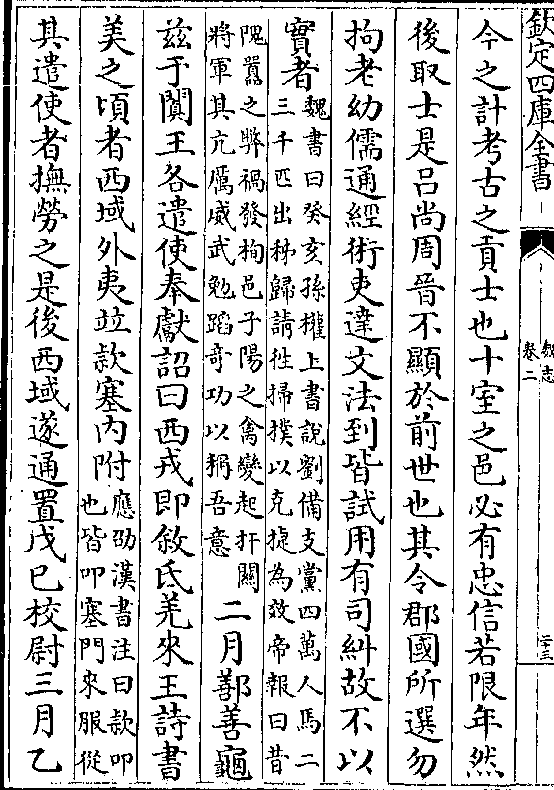 欽定四庫全書
魏志
卷二
二十三
今之計考古之貢士也十室之邑必有忠信若限年然
後取士是吕尚周晉不顯於前世也其令郡國所選勿
拘老幼儒通經術吏達文法到皆試用有司糾故不以
實者
魏書曰癸亥孫權上書說劉備支黨四萬人馬二
三千匹出秭歸請往掃撲以克捷為效帝報曰昔
隗囂之弊禍發栒邑子陽之禽變起扞關
將軍其亢厲威武勉蹈奇功以稱吾意
二月鄯善龜
兹于闐王各遣使奉獻詔曰西戎即敘氐羌來王詩書
美之頃者西域外夷竝款塞内附
應劭漢書注曰款叩
也皆叩塞門來服從
其遣使者撫勞之是後西域遂通置戊已校尉三月乙